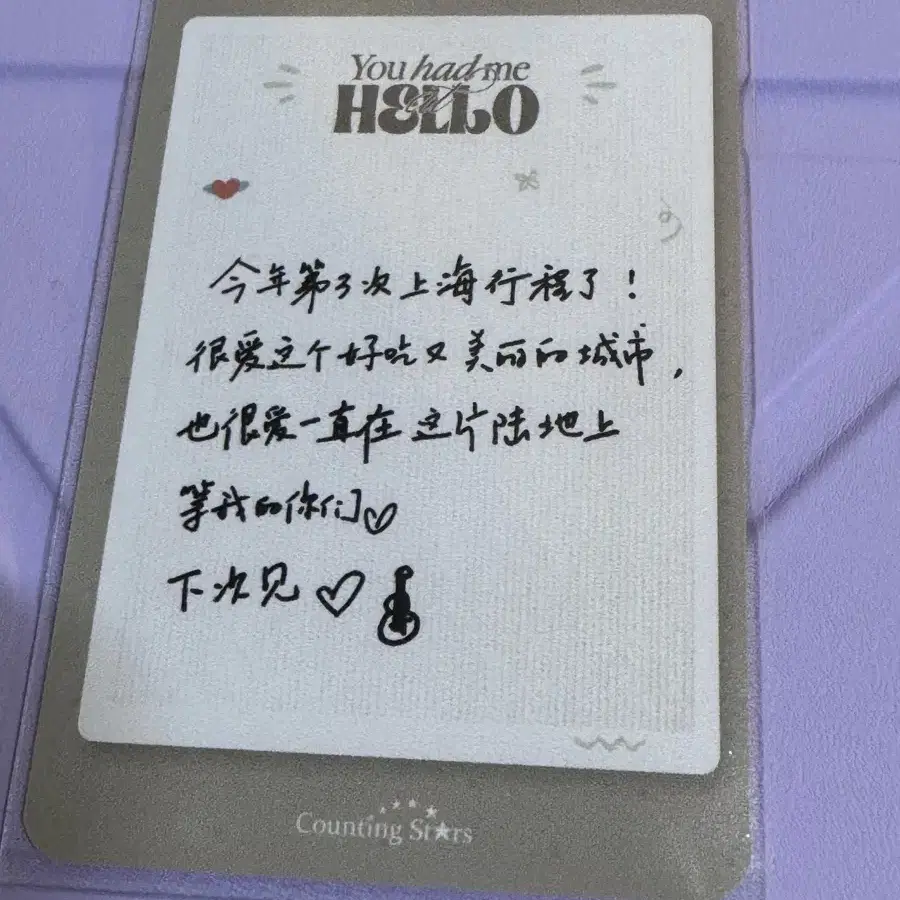 You had me
at
HELLO
今年第3次上海行程了!
很爱这个好吃又美丽的城市,
也很爱一直在这片陆地上
等我的你们♡
下次见♡
Counting Stars